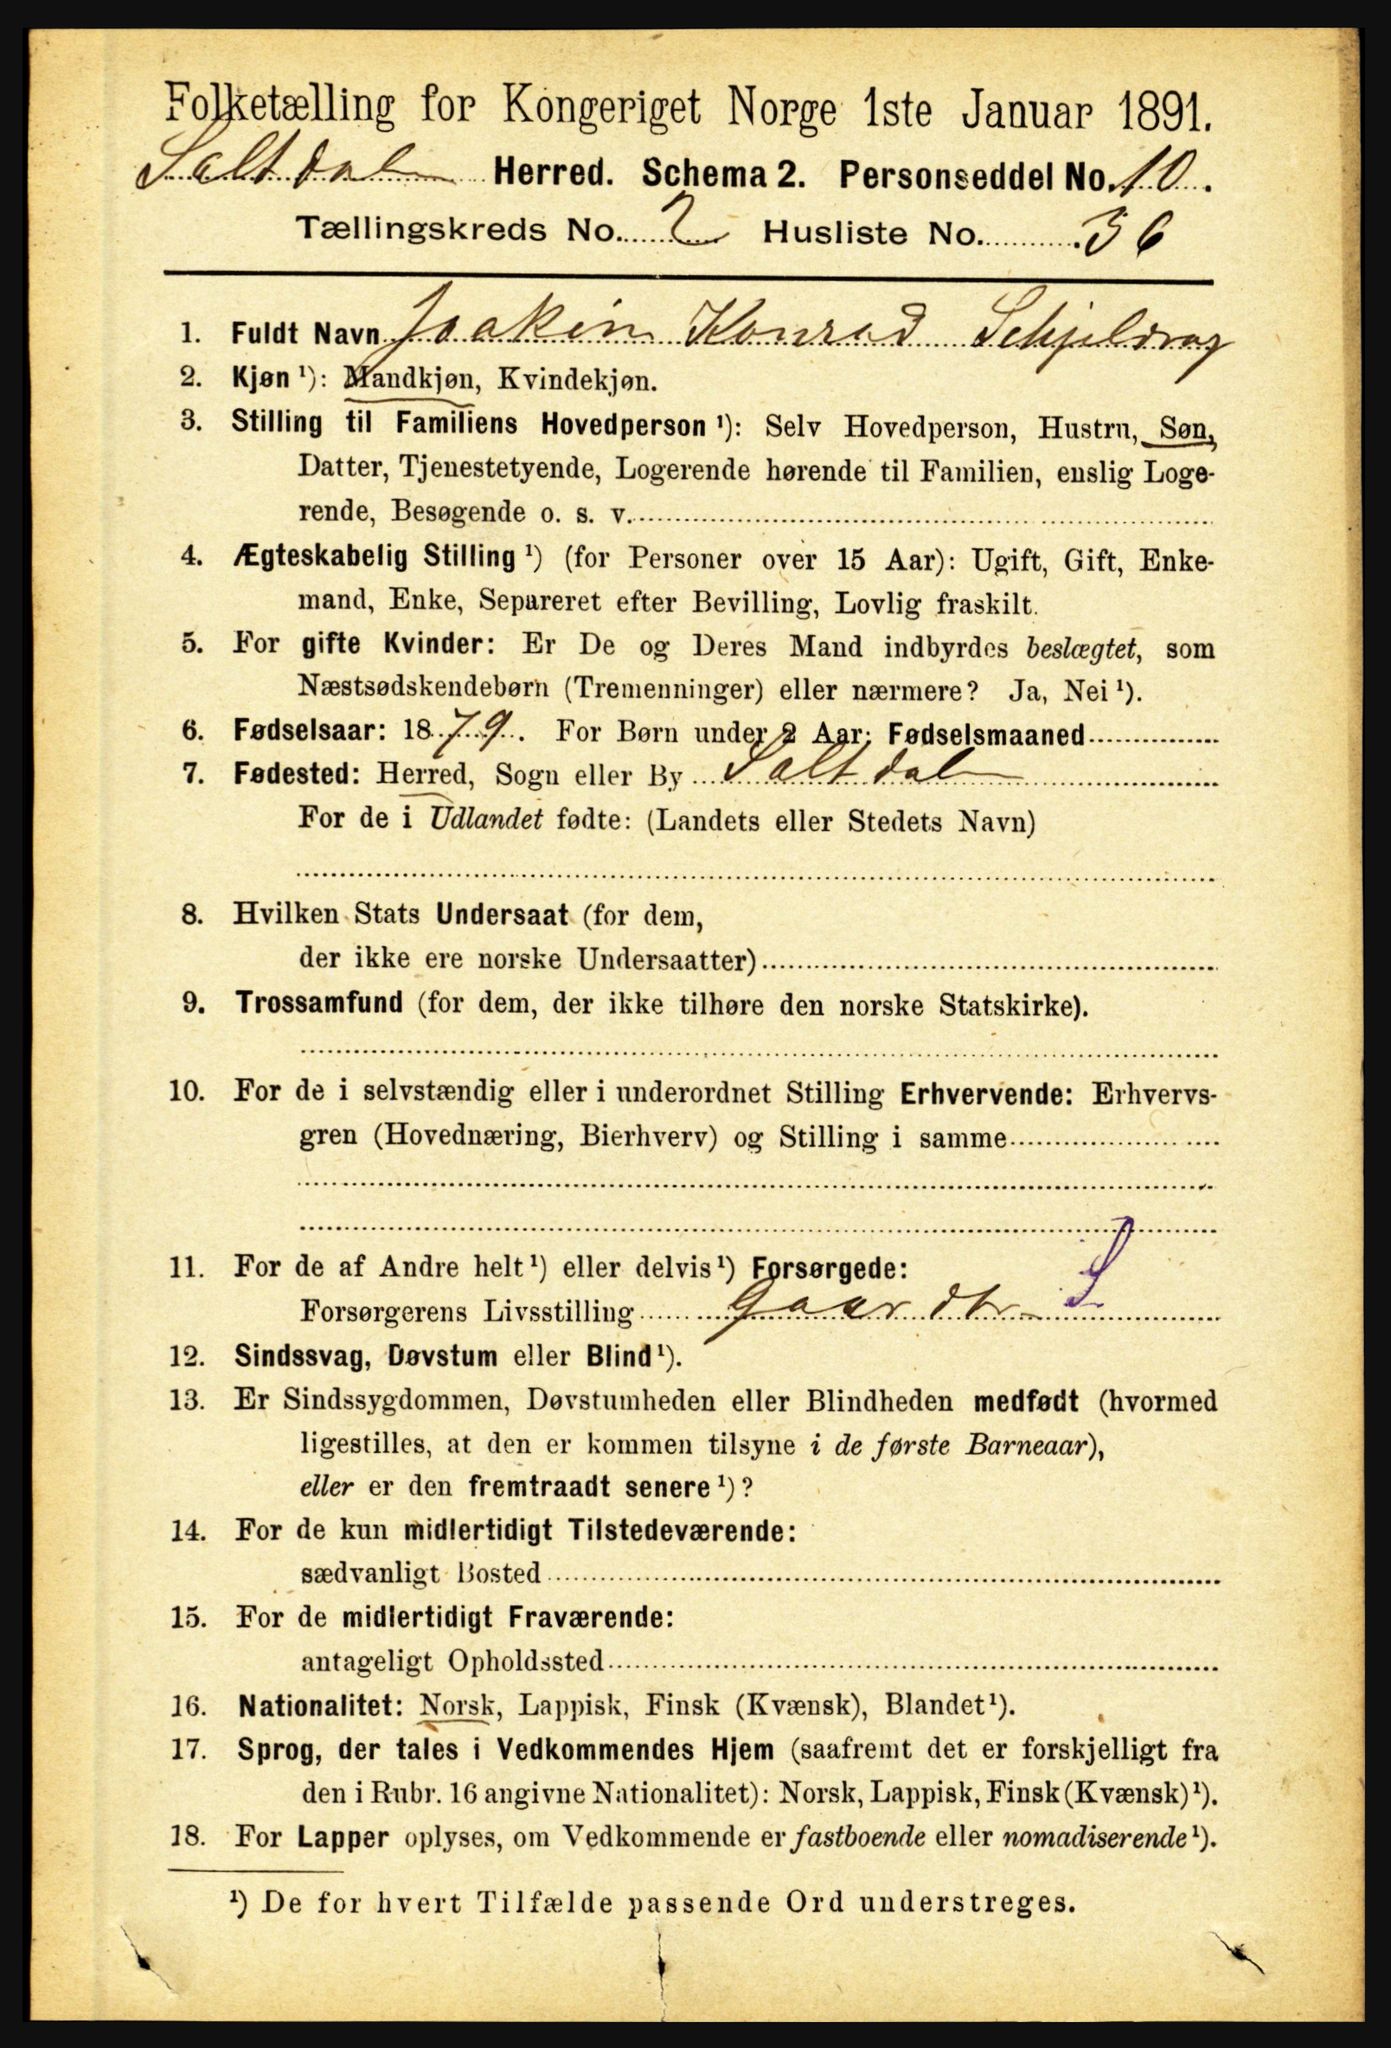 Folketælling for Kongeriget Norge 1ste Januar 1891.
Saltdal Herred. Schema 2. Personseddel No. 10.
Tællingskreds No. 2 Husliste No. 36
1. Fuldt Navn Joakim Konrad Schjeldrag
2. Kjøn ¹): Mandkjøn, Kvindekjøn.
3. Stilling til Familiens Hovedperson ¹): Selv Hovedperson, Hustru, Søn,
Datter, Tjenestetyende, Logerende hørende til Familien, enslig Loge-
rende, Besøgende o. s. v.
4. Ægteskabelig Stilling ¹) (for Personer over 15 Aar): Ugift, Gift, Enke-
mand, Enke, Separeret efter Bevilling, Lovlig fraskilt.
5. For gifte Kvinder: Er De og Deres Mand indbyrdes beslægtet, som
Næstsødskendebørn (Tremenninger) eller nærmere? Ja, Nei ¹).
6. Fødselsaar: 1879. For Børn under 2 Aar: Fødselsmaaned
7. Fødested: Herred, Sogn eller By Saltdal
For de i Udlandet fødte: (Landets eller Stedets Navn)
8. Hvilken Stats Undersaat (for dem,
der ikke ere norske Undersaatter)
9. Trossamfund (for dem, der ikke tilhøre den norske Statskirke).
10. For de i selvstændig eller i underordnet Stilling Erhvervende: Erhvervs-
gren (Hovednæring, Bierhverv) og Stilling i samme
11. For de af Andre helt ¹) eller delvis ¹) Forsørgede:
Forsørgerens Livsstilling Gaardbr. S
12. Sindssvag, Døvstum eller Blind ¹).
13. Er Sindssygdommen, Døvstumheden eller Blindheden medfødt (hvormed
ligestilles, at den er kommen tilsyne i de første Barneaar),
eller er den fremtraadt senere ¹)?
14. For de kun midlertidigt Tilstedeværende:
sædvanligt Bosted
15. For de midlertidigt Fraværende:
antageligt Opholdssted
16. Nationalitet: Norsk, Lappisk, Finsk (Kvænsk), Blandet ¹).
17. Sprog, der tales i Vedkommendes Hjem (saafremt det er forskjelligt fra
den i Rubr. 16 angivne Nationalitet): Norsk, Lappisk, Finsk (Kvænsk) ¹).
18. For Lapper oplyses, om Vedkommende er fastboende eller nomadiserende ¹).
¹) De for hvert Tilfælde passende Ord understreges.